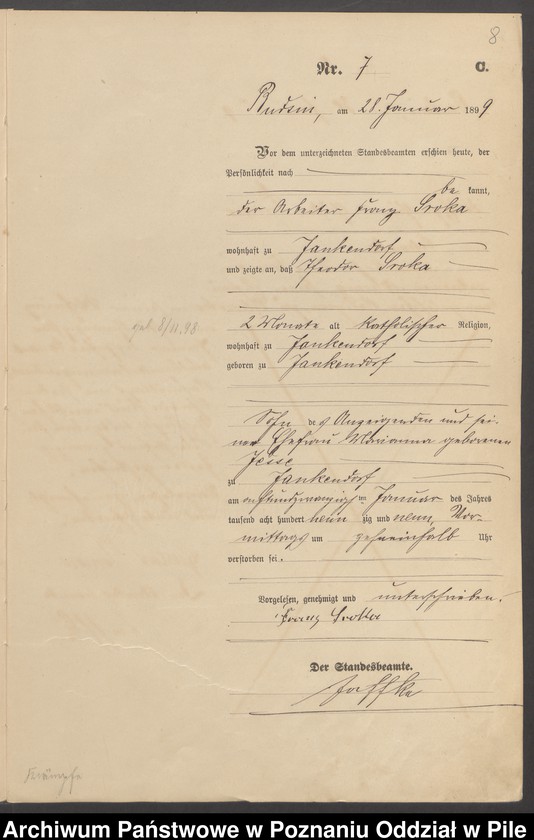 8
Nr. 7 C.
Rudsin, am 28. Januar 1899
Vor dem unterzeichneten Standesbeamten erschien heute, der
Persönlichkeit nach
be kannt,
der Arbeiter Franz Sroka
wohnhaft zu Jankendorf
und zeigte an, daß Theodor Sroka
geb. 8/11. 98
2 Monate alt katholischer Religion,
wohnhaft zu Jankendorf
geboren zu Jankendorf
Sohn des Anzeigenden und sei-
ner Ehefrau Marianna geborenen
Jesse
zu Jankendorf
am achtundzwanzigsten Januar des Jahres
tausend acht hundert neun zig und neun, Vor-
mittags um zehneinhalb Uhr
verstorben sei.
Vorgelesen, genehmigt und unterschrieben.
Franz Sroka
Der Standesbeamte.
Jaffke
Krämpfe
Archiwum Państwowe w Poznaniu Oddział w Pile